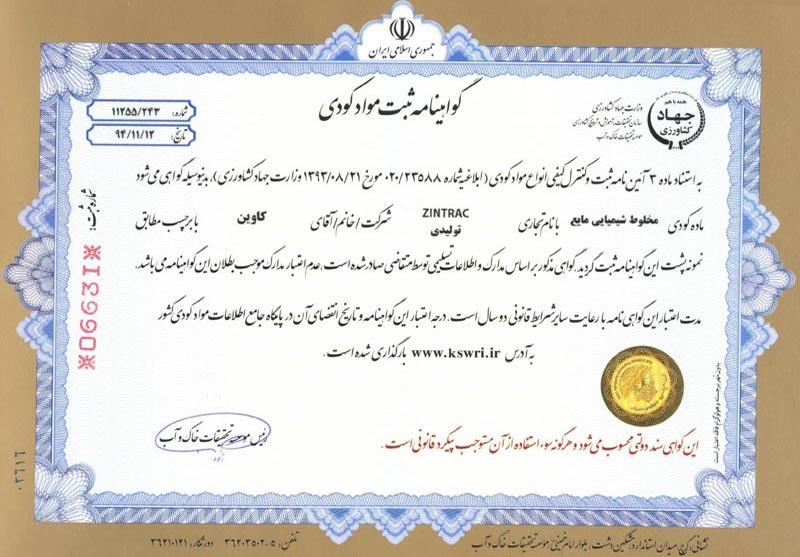 جمهوری اسلامی ایران
گواهینامه ثبت مواد کودی
شماره: ۱۱۲۵۵/۲۴۳
تاریخ: ۹۴/۱۱/۱۲
همه با هم
جهاد
کشاورزی
وزارت جهاد کشاورزی
سازمان تحقیقات، آموزش و ترویج کشاورزی
موسسه تحقیقات خاک و آب
به استناد ماده ۳ آئین نامه ثبت و کنترل کیفی انواع مواد کودی (ابلاغیه شماره ۰۲۰/۲۳۵۸۸ مورخ ۱۳۹۳/۰۸/۲۱ وزارت جهاد کشاورزی)، بدینوسیله گواهی می شود
ماده کودی مخلوط شیمیایی مایع با نام تجاری ZINTRAC تولیدی شرکت/خانم/آقای کاوین با برچسب مطابق
نمونه پشت این گواهینامه ثبت گردید. گواهی مذکور بر اساس مدارک و اطلاعات تسلیمی توسط متقاضی صادر شده است، عدم اعتبار مدارک موجب بطلان این گواهینامه می باشد.
مدت اعتبار این گواهی نامه با رعایت سایر شرایط قانونی دو سال است. درجه اعتبار این گواهینامه و تاریخ انقضای آن در پایگاه جامع اطلاعات مواد کودی کشور
به آدرس www.kswri.ir بارگذاری شده است.
شماره ثبت:
※06631※
بدون مهر برجسته و هولوگرام فاقد اعتبار است
رئیس موسسه تحقیقات خاک و آب
این گواهی سند دولتی محسوب می شود و هرگونه سوء استفاده از آن مستوجب پیگرد قانونی است.
۰۲۶۱۶
نشانی: کرج، میدان استاندارد، مشکین دشت، بلوار امام خمینی، موسسه تحقیقات خاک و آب
تلفن: ۵-۳۶۲۰۳۵۰۲ دورنگار: ۳۶۲۱۰۱۲۱